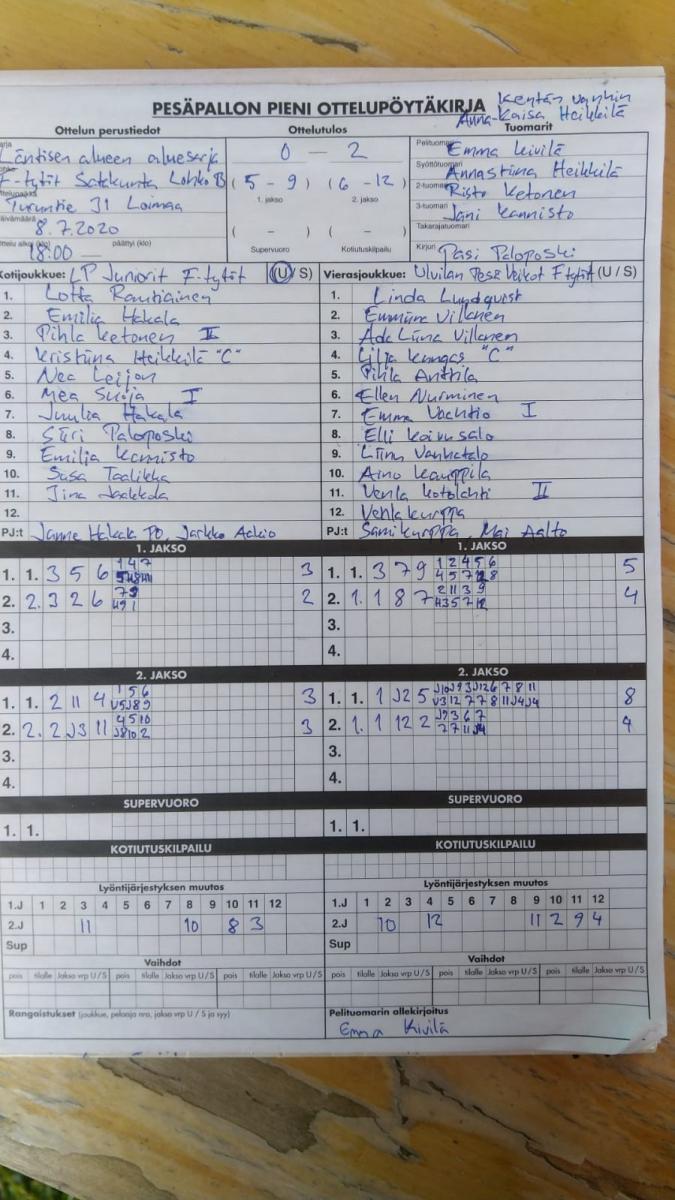 PESÄPALLON PIENI OTTELUPÖYTÄKIRJA
Kentän vanhin
Anna-Kaisa Heikkilä
Ottelun perustiedot
Ottelutulos
Tuomarit
Läntisen alueen aluesarja
F-tytöt Satakunta Lohko B
Turuntie 31 Loimaa
8.7.2020
18:00 — päättyi (klo)
0 – 2
( 5 – 9 ) ( 6 – 12 )
1. jakso 2. jakso
( – ) ( – )
Supervuoro Kotiutuskilpailu
Pelituomari Emma Kivilä
Syöttötuomari Annastiina Heikkilä
2-tuomari Risto Ketonen
3-tuomari Jani Kannisto
Takarajatuomari
Kirjuri Pasi Paloposki
Kotijoukkue: LP Juniorit F-tytöt (U / S)
1. Lotta Rantiainen
2. Emilia Hakala
3. Pihla Ketonen II
4. Kristiina Heikkilä "C"
5. Nea Leijon
6. Mea Suoja I
7. Juulia Hakala
8. Siiri Paloposki
9. Emilia Kannisto
10. Susa Taalikka
11. Jina Jaakkola
12.
PJ:t Janne Hakala PO, Jarkko Ackio
Vierasjoukkue: Ulvilan Pesä Veikot F tytöt (U / S)
1. Linda Lundqvist
2. Emmiina Villanen
3. Ada Liina Villanen
4. Lilja Kangas "C"
5. Pihla Anttila
6. Ellen Nurminen
7. Emma Vachtio I
8. Elli Koivusalo
9. Liinu Vanhatalo
10. Aino Kauppila
11. Venla Kotolahti II
12. Venla Kurppa
PJ:t Sami Kurppa, Mai Aalto
1. JAKSO
1. 1. 3 5 6 1 4 7 3
2. 2. 3 2 6 2
3.
4.
1. JAKSO
1. 1. 3 7 9 1 2 4 5 6 5
2. 1. 1 8 7 2 11 3 9 4
3.
4.
2. JAKSO
1. 1. 2 11 4 1 5 6 3
2. 2. 2 J3 11 4 5 10 3
J8 10 2
3.
4.
2. JAKSO
1. 1. 1 J2 5 J10 J9 3 J12 6 7 8 11 8
V3 12 7 7 8 11 J4 J4
2. 1. 1 12 2 J9 3 6 7 4
7 7 11 J4
3.
4.
SUPERVUORO
1. 1.
SUPERVUORO
1. 1.
KOTIUTUSKILPAILU
KOTIUTUSKILPAILU
Lyöntijärjestyksen muutos
1.J 1 2 3 4 5 6 7 8 9 10 11 12
2.J 11 10 8 3
Sup
Lyöntijärjestyksen muutos
1.J 1 2 3 4 5 6 7 8 9 10 11 12
2.J 10 12 11 2 9 4
Sup
Vaihdot
pois tilalle Jakso vrp U/S pois tilalle Jakso vrp U/S pois tilalle Jakso vrp U/S
Vaihdot
pois tilalle Jakso vrp U/S pois tilalle Jakso vrp U/S pois tilalle Jakso vrp U/S
Rangaistukset (joukkue, pelaaja nro, jakso vrp U / S ja syy)
Pelituomarin allekirjoitus
Emma Kivilä